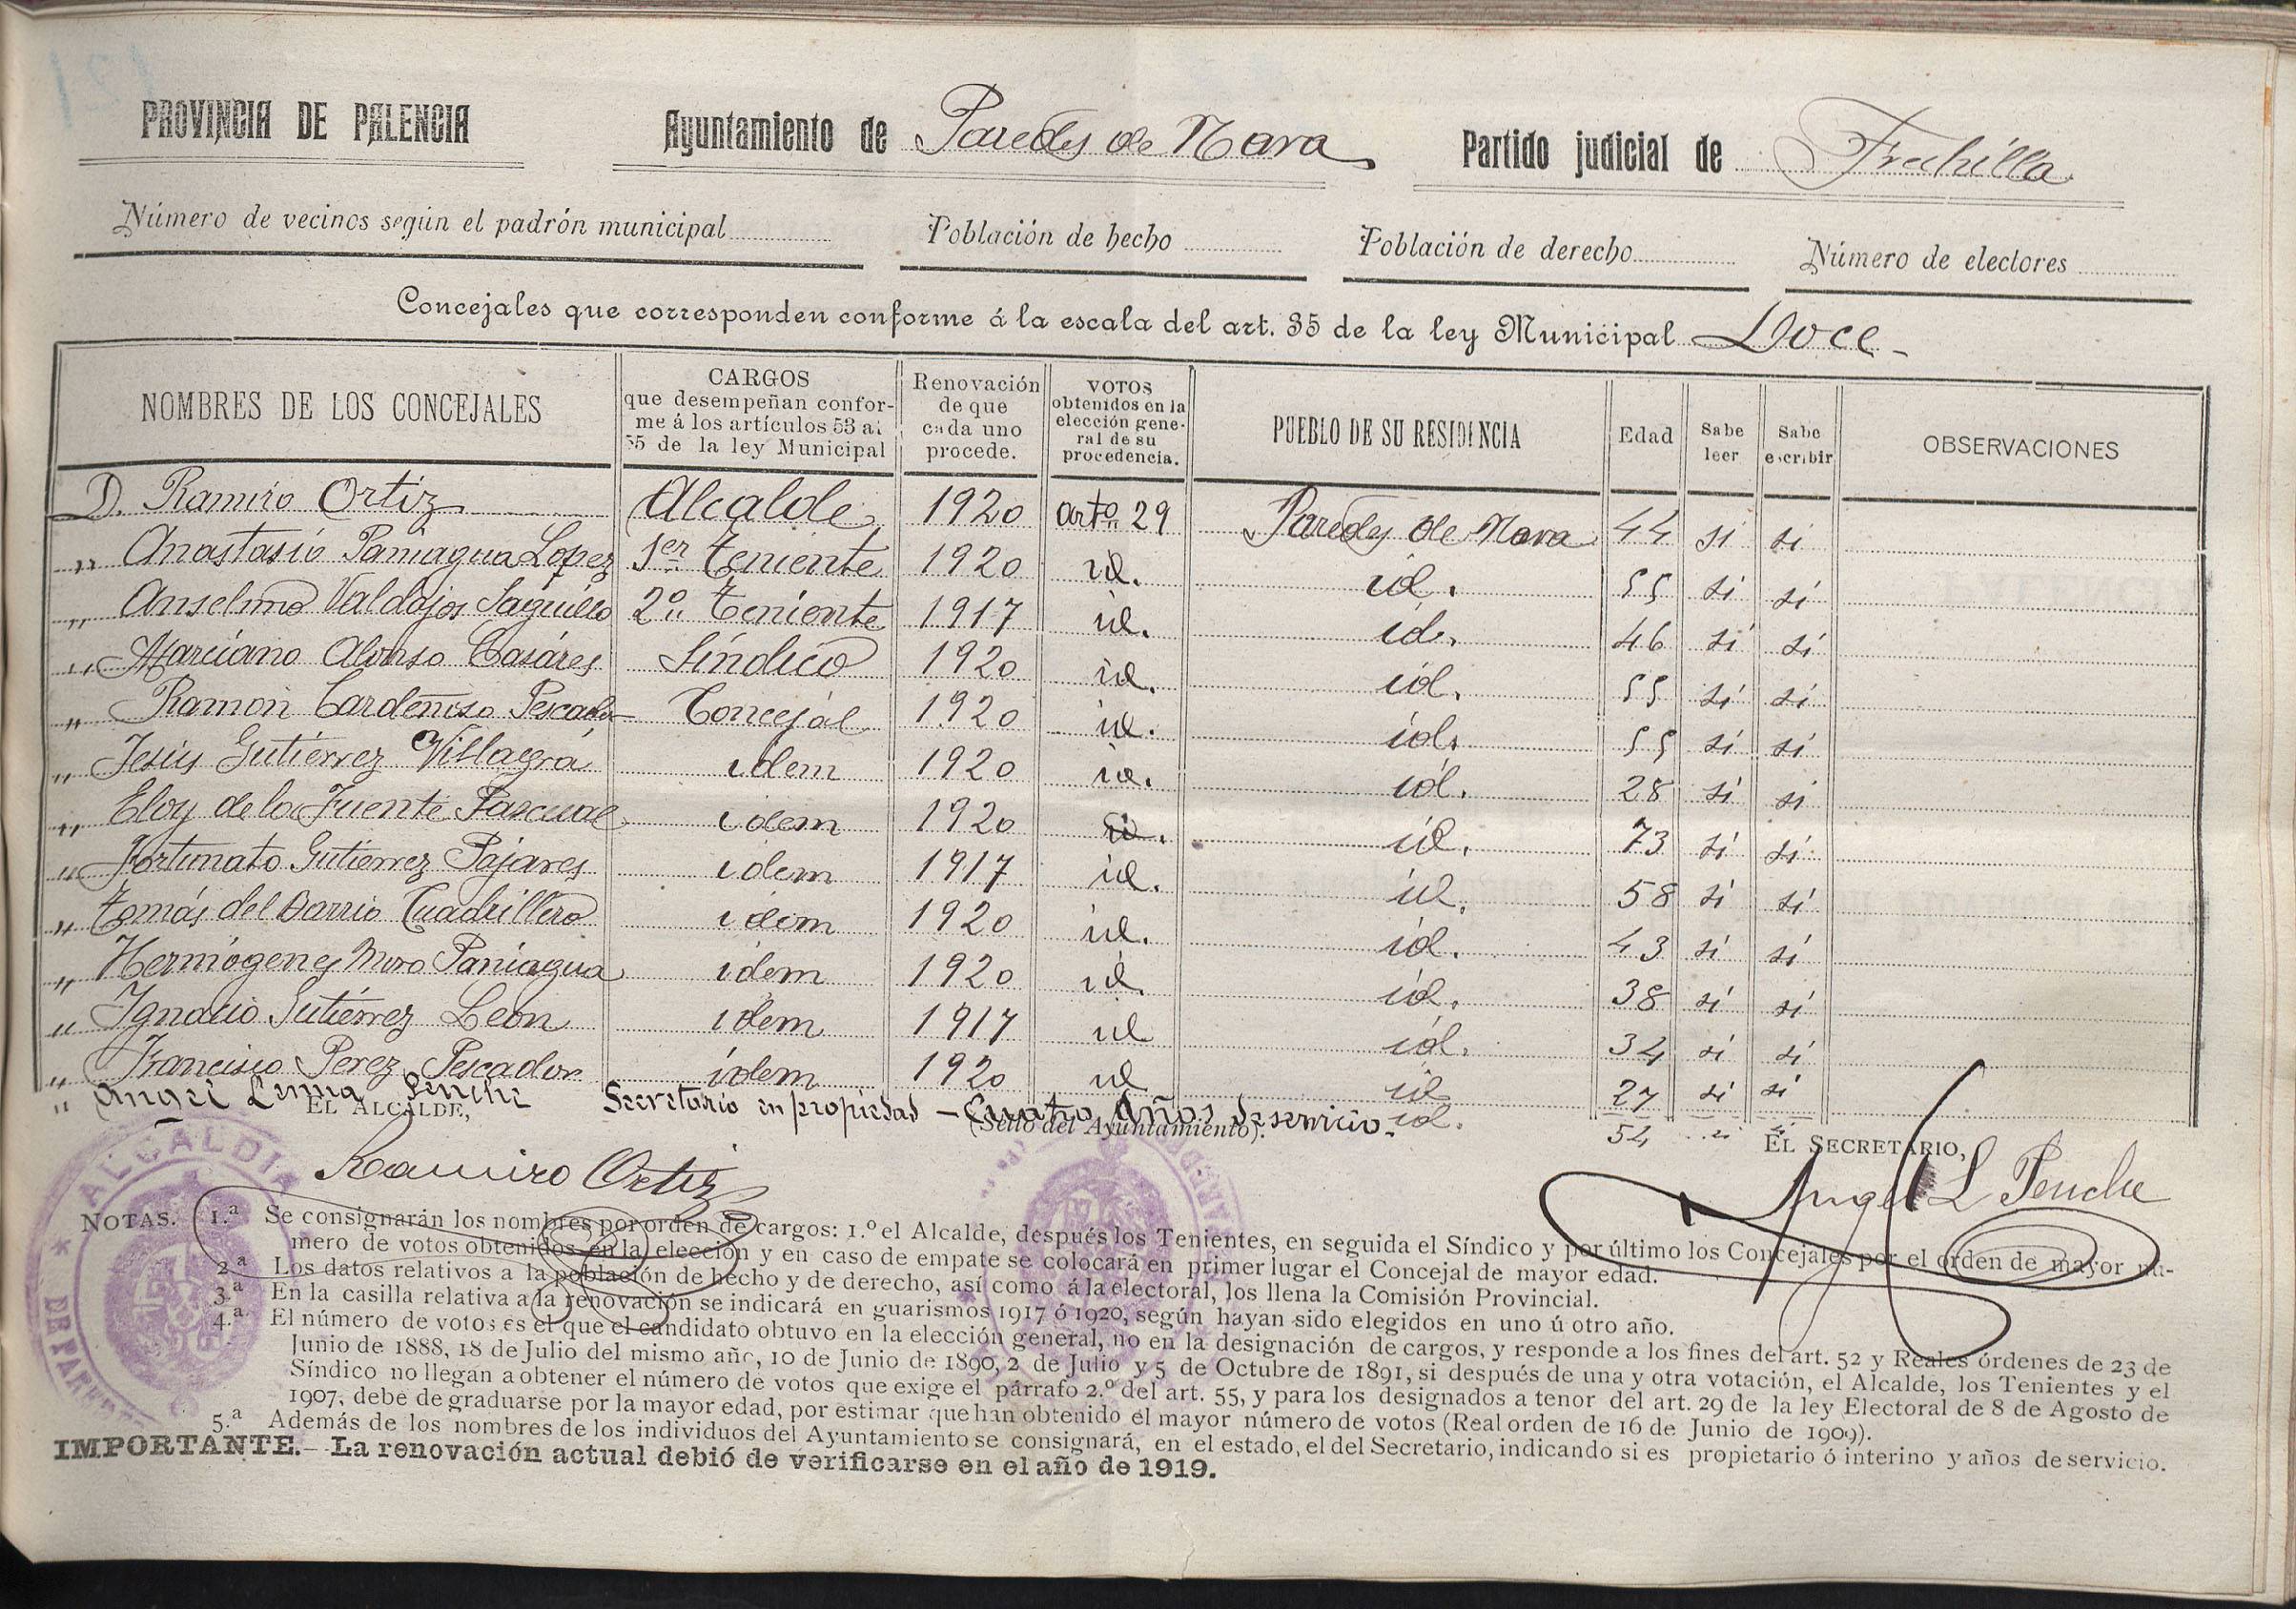 PROVINCIA DE PALENCIA Ayuntamiento de Paredes de Nava Partido judicial de Frechilla
Número de vecinos según el padrón municipal Población de hecho Población de derecho Número de electores
Concejales que corresponden conforme á la escala del art. 35 de la ley Municipal Doce
NOMBRES DE LOS CONCEJALES CARGOS que desempeñan conforme á los artículos 53 al 55 de la ley Municipal Renovación de que cada uno procede. VOTOS obtenidos en la elección general de su procedencia. PUEBLO DE SU RESIDENCIA Edad Sabe leer Sabe escribir OBSERVACIONES
D. Ramiro Ortiz Alcalde 1920 arto 29 Paredes de Nava 44 si si
" Anastasio Paniagua Lopez 1er teniente 1920 id. id. 55 si si
" Anselmo Valdajos Saguillo 2º teniente 1917 id. id. 46 si si
" Marciano Alonso Casáres Síndico 1920 id. id. 55 si si
" Ramón Cardeñoso Pescador Concejal 1920 id. id. 55 si si
" Jesús Gutiérrez Villagrá idem 1920 id. id. 28 si si
" Eloy de la Fuente Pascual idem 1920 id. id. 73 si si
" Fortunato Gutiérrez Pajares idem 1917 id. id. 58 si si
" Tomás del Barrio Cuadrillero idem 1920 id. id. 43 si si
" Hermógenes Muro Paniagua idem 1920 id. id. 38 si si
" Ignacio Gutiérrez León idem 1917 id id. 34 si si
" Francisco Perez Pescador idem 1920 id id 27 si si
" Angel Lerma Penche Secretario en propiedad - Cuatro Años de servicio - id. 54 si si
EL ALCALDE, (Sello del Ayuntamiento). EL SECRETARIO,
Ramiro Ortiz Angel L Penche
ALCALDIA
NOTAS. 1.ª Se consignarán los nombres por orden de cargos: 1.º el Alcalde, después los Tenientes, en seguida el Síndico y por último los Concejales por el orden de mayor nú-
mero de votos obtenidos en la elección y en caso de empate se colocará en primer lugar el Concejal de mayor edad.
2.ª Los datos relativos a la población de hecho y de derecho, así como á la electoral, los llena la Comisión Provincial.
3.ª En la casilla relativa a la renovación se indicará en guarismos 1917 ó 1920, según hayan sido elegidos en uno ú otro año.
4.ª El número de votos es el que el candidato obtuvo en la elección general, no en la designación de cargos, y responde a los fines del art. 52 y Reales órdenes de 23 de
Junio de 1888, 18 de Julio del mismo año, 10 de Junio de 1890, 2 de Julio y 5 de Octubre de 1891, si después de una y otra votación, el Alcalde, los Tenientes y el
Síndico no llegan a obtener el número de votos que exige el párrafo 2.º del art. 55, y para los designados a tenor del art. 29 de la ley Electoral de 8 de Agosto de
1907, debe de graduarse por la mayor edad, por estimar que han obtenido el mayor número de votos (Real orden de 16 de Junio de 1909).
5.ª Además de los nombres de los individuos del Ayuntamiento se consignará, en el estado, el del Secretario, indicando si es propietario ó interino y años de servicio.
IMPORTANTE.- La renovación actual debió de verificarse en el año de 1919.